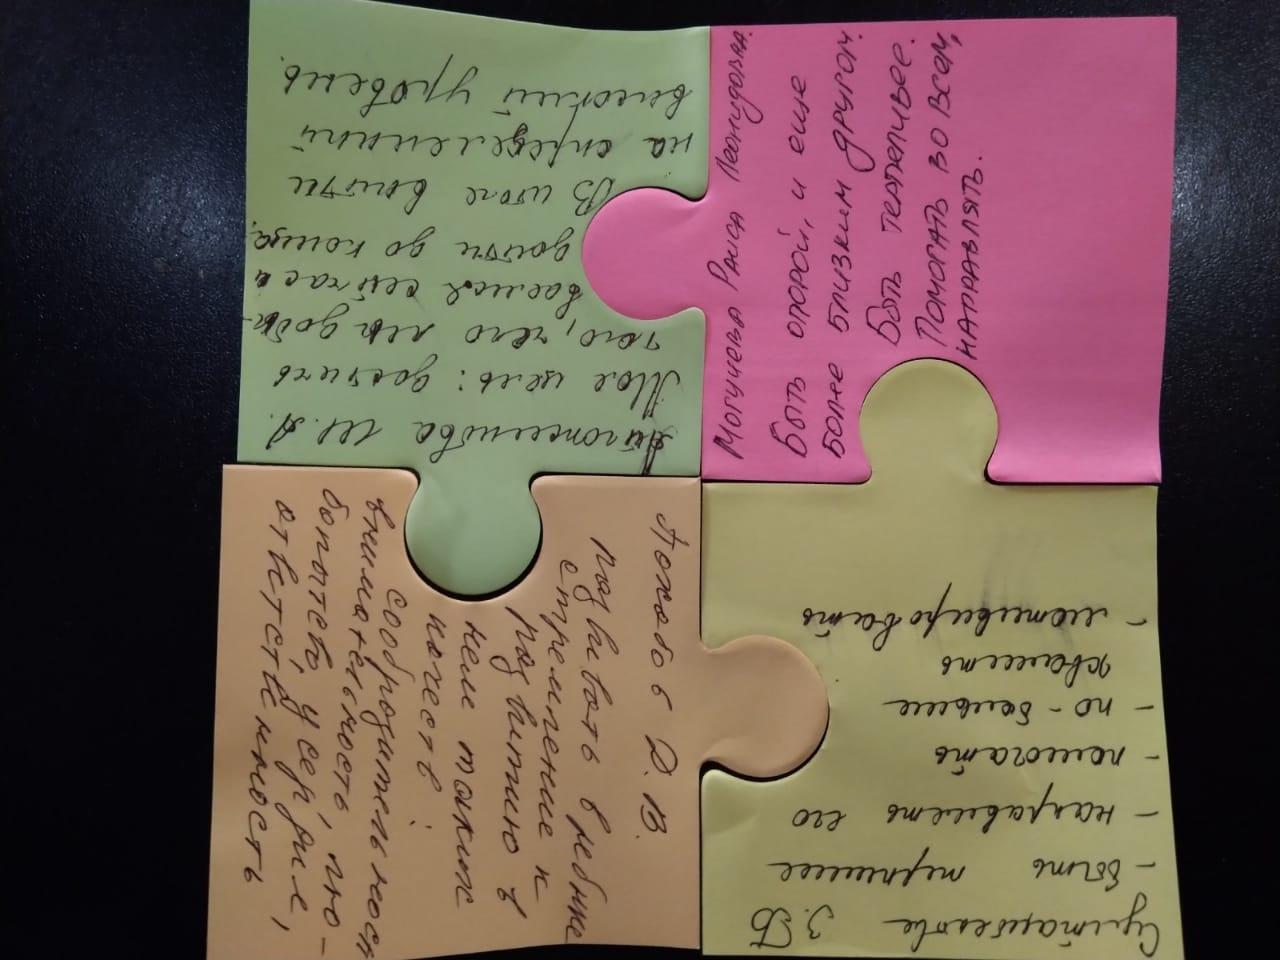 Айгожинова Ш.А.
Моя цель: достичь
того, чего мы доби-
ваемся сейчас и
дойти до конца.
В итоге выйти
на определенный
высокий уровень.
Могучева Раиса Леонидовна.
Быть опорой, и еще
более близким другом.
Быть терпеливее.
Помогать во всем,
направлять.
Д.В.
развивать в ребенке
стремление к
развитию в
нем таких
качеств:
сообразительность
внимательность, лю-
бопытство, усердие,
ответственность
З.Б
- быть терпимее
- направлять его
- помогать
- по-больше
хвалить
- мотивировать